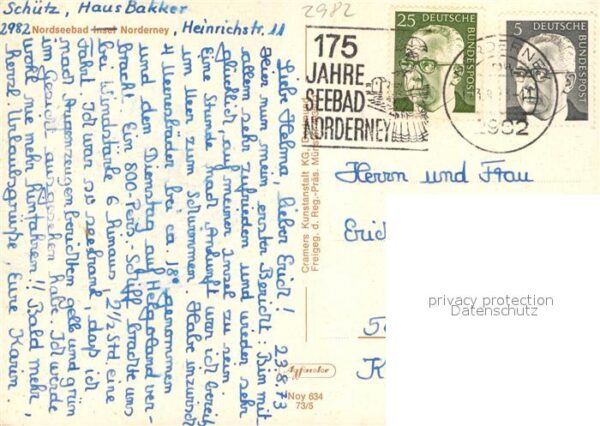 Schütz, Haus Bakker
2982 Nordseebad Insel Norderney, Heinrichstr. 11
2982
25
DEUTSCHE BUNDESPOST
5
DEUTSCHE BUNDESPOST
175
JAHRE
SEEBAD
NORDERNEY
2982
Herrn und Frau
Erich
K
23.8.73
Liebe Helma, lieber Erich!
Hier nun mein erster Bericht: Bin mit
allem sehr zufrieden und wieder sehr
glücklich, auf meiner Insel zu sein.
Eine Stunde nach Ankunft war ich bereits
im Meer zum Schwimmen. Habe inzwischen
4 Meerbäder bei ca. 18° genommen
und den Dienstag auf Helgoland ver-
bracht. Ein 800-Pers.-Schiff brachte uns
bei Windstärke 6 hinaus, 2 1/2 Std. eine
Fahrt. Ich war so seekrank, daß ich
nach Augenzeugenberichten gelb und grün
im Gesicht ausgesehen habe. Ich werde
wohl nie mehr hinfahren!! Bald mehr,
Herzl. Urlaubsgrüße, Eure Karin
Cramers Kunstanstalt KG,
Freigeg. d. Reg.-Präs. Münster
Noy 634
73/5
privacy protection
Datenschutz